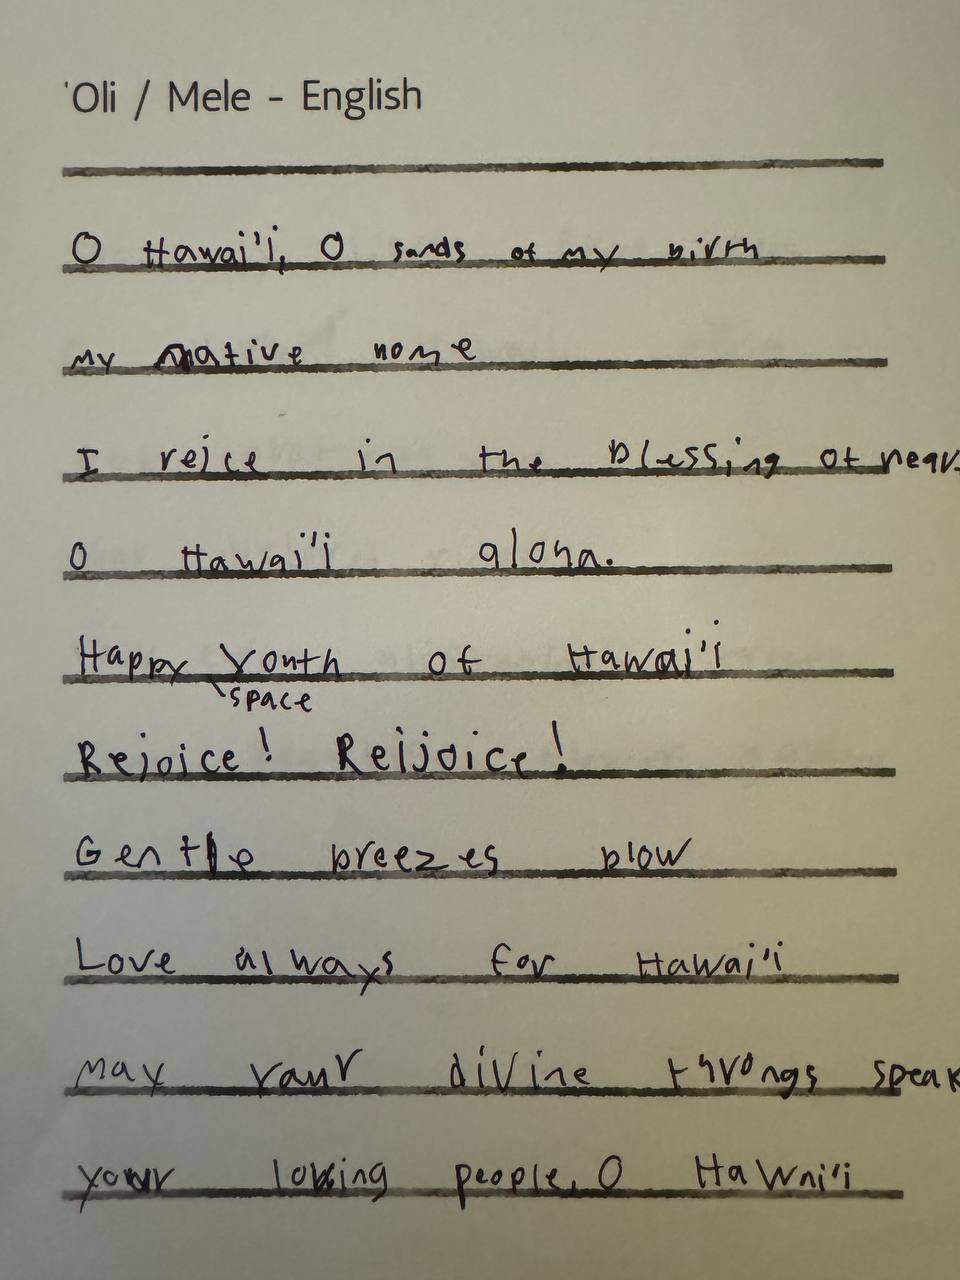 'Oli / Mele - English
O Hawai'i, O sands of my birth
my native home
I rejce in the blessing of heav
O Hawai'i aloha.
Happy Youth of Hawai'i
space
Rejoice! Reijoice!
Gentle breezes blow
Love always for Hawai'i
may your divine throngs speak
your loving people, O Hawai'i